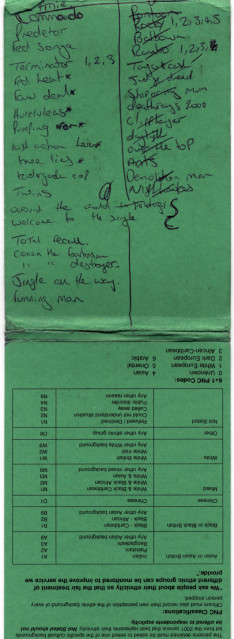 Arnie
Commando
Predetor
Red Sonja
Terminator 1, 2, 3
Red heat *
Raw deal *
Hurcules *
Pumping iron *
last action hero *
true lies *
kindergarden cop
Twins
around the world in 80 days
welcome to the jungle
Total recall.
conan the barbarian
" " destroyer.
Jingle all the way.
Running man
Rocky 1, 2, 3, 4, 5
Rambo 1, 2, 3,
Tango + cash
Judge dread
deathrace 2000
cliffhanger
daylight
over the top
Ants
Demolition man
Nighthawks
The persons description must be based on one of the specific cultural background
PNC Classifications:
Officers must also record their own perception of the ethnic background of every
person stopped.
We ask people about their ethnicity so that the fair treatment of
different ethnic groups can be monitored to improve the service we
provide.
Asian or Asian British Indian A1
Pakistani A2
Bangladeshi A3
Any other Asian background A9
Black or Black British Black - Caribbean B1
Black - African B2
Any other Black background B9
Chinese Chinese O1
Mixed White & Black Caribbean M1
White & Black African M2
White & Asian M3
Any other mixed background M9
White White British W1
White Irish W2
Any other White background W9
Other Any other ethnic group O9
Not Stated Refused / Declined N1
Could not understand situation N2
Called away N3
Public disorder N4
Any other reason N9
1-6 PNC Codes:
0 Unknown 4 Asian
1 White European 5 Oriental
2 Dark European 6 Arabic
3 African-Caribbean